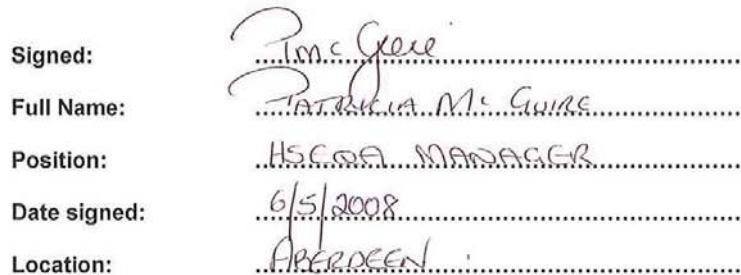 Signed: PMcGuire
Full Name: PATRICIA Mc GUIRE
Position: HSEQA MANAGER
Date signed: 6/5/2008
Location: ABERDEEN